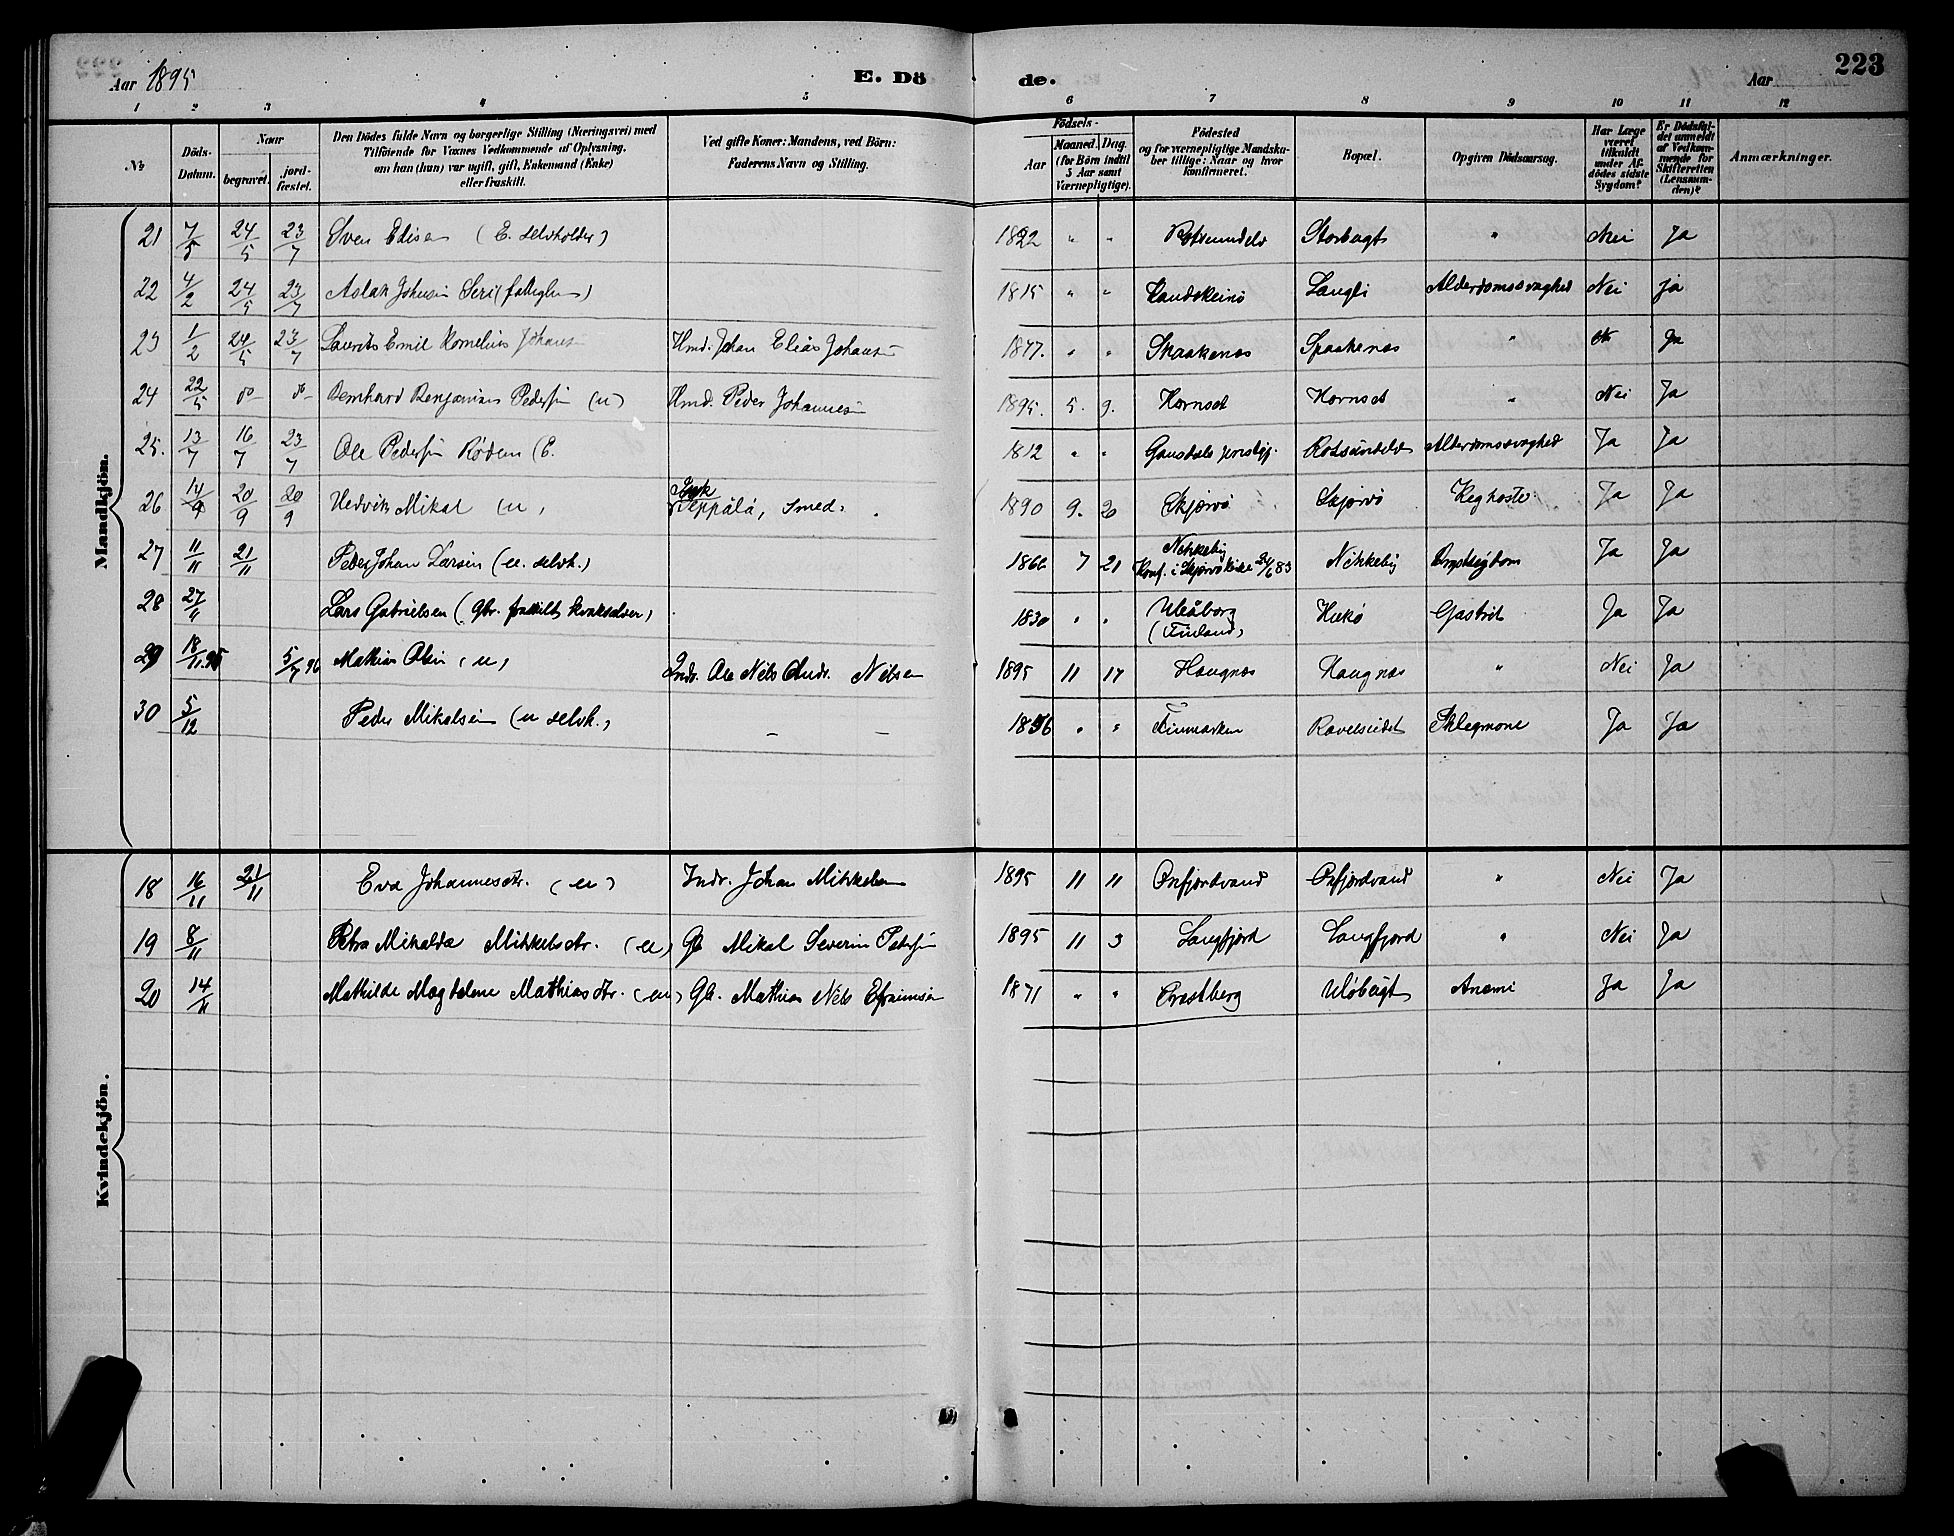 Aar 1895 E. Dö de. Aar 223
1 2 3 4 5 6 7 8 9 10 11 12
№ Döds-Datum. Naar begravet. jord-fæstet. Den Dödes fulde Navn og borgerlige Stilling (Næringsvei) med Tilföiende for Voxnes Vedkommende af Oplysning. om han (hun) var ugift, gift, Enkemand (Enke) eller fraskilt. Ved gifte Koner: Mandens, ved Börn: Faderens Navn og Stilling. Födsels- Aar Maaned. Dag. (for Börn indtil 5 Aar samt Værnepligtige). Födested og for værnepligtige Mandska-ber tillige: Naar og hvor konfirmeret. Bopæl. Opgiven Dödsaarsag. Har Læge været tilkaldt under Af-dödes sidste Sygdom? Er Dödsfal-det anmeldt af Vedkom-mende for Skifteretten (Lensman-den)? Anmærkninger.
Mandkjön.
21 7/5 24/5 23/7 Sven Elisen (E. selvholder) 1822 " " Rotsundelv Storbugt " Nei Ja
22 4/2 24/5 23/7 Aslak Johnsen Seri 1815 " " Kautokeino Langli Alderdomssvaghed Nei ja
23 1/2 24/5 23/7 Laurits Emil Kornelius Johans Hmd. Johan Elias Johans 1877. " " Skaakenes Spaakenes " N Ja
24 22/5 do do Bernhard Benjamin Pedersen (u) Hmd. Peder Johannesen 1895. 5. 9. Hornset Hornset " Nei Ja
25. 13/7 16/7 23/7 Ole Pedersen Røden (E. 1812 " " Gausdals prestgj. Rotsundelv Alderdomssvaghed Ja Ja
26 14/9 20/9 20/9 Hedvik Mikal (u, Isak Seppälä, Smed. 1890 9. 20 Skjærvø Skjervø Kighoste Ja Ja
27 11/11 21/11 Peder Johan Larsen (u. selvh.) 1866 7 21 Nikkeby Konf. i Skjervø Kirke 24/6 83 Nikkeby Brystsygdom Ja Ja
28 27/11 Lars Gabrielsen (Gbr. fraskilt kvaksalver) 1830 " " Uleåborg (Finland) Hukø Gastrit Ja Ja
29 18/11.95 5/7 96 Mathias Olsen (u) Indr. Ole Nils Andr. Nilsen 1895 11 17 Haugnæs Haugnæs " Nei Ja
30 5/12 Peder Mikalsen (u selvh.) - - 1856 " " Finmarken Ravelseidet Phlegmone Ja Ja
Kvindekjön.
18 16/11 21/11 Eva Johannesdtr. (u) Indr. Johan Mikkelsen 1895 11 11 Oxfjordvand Oxfjordvand " Nei Ja
19 8/11 Petra Mikalda Mikkelsdtr. (u) Gb Mikal Severin Petersen 1895 11 3 Langfjord Langfjord " Nei Ja
20 14/11 Mathilde Magdalene Mathiasdtr. (u) Gb. Mathias Nils Efraimsen 1871 " " Præstberg Uløbugt Anæmi Ja Ja